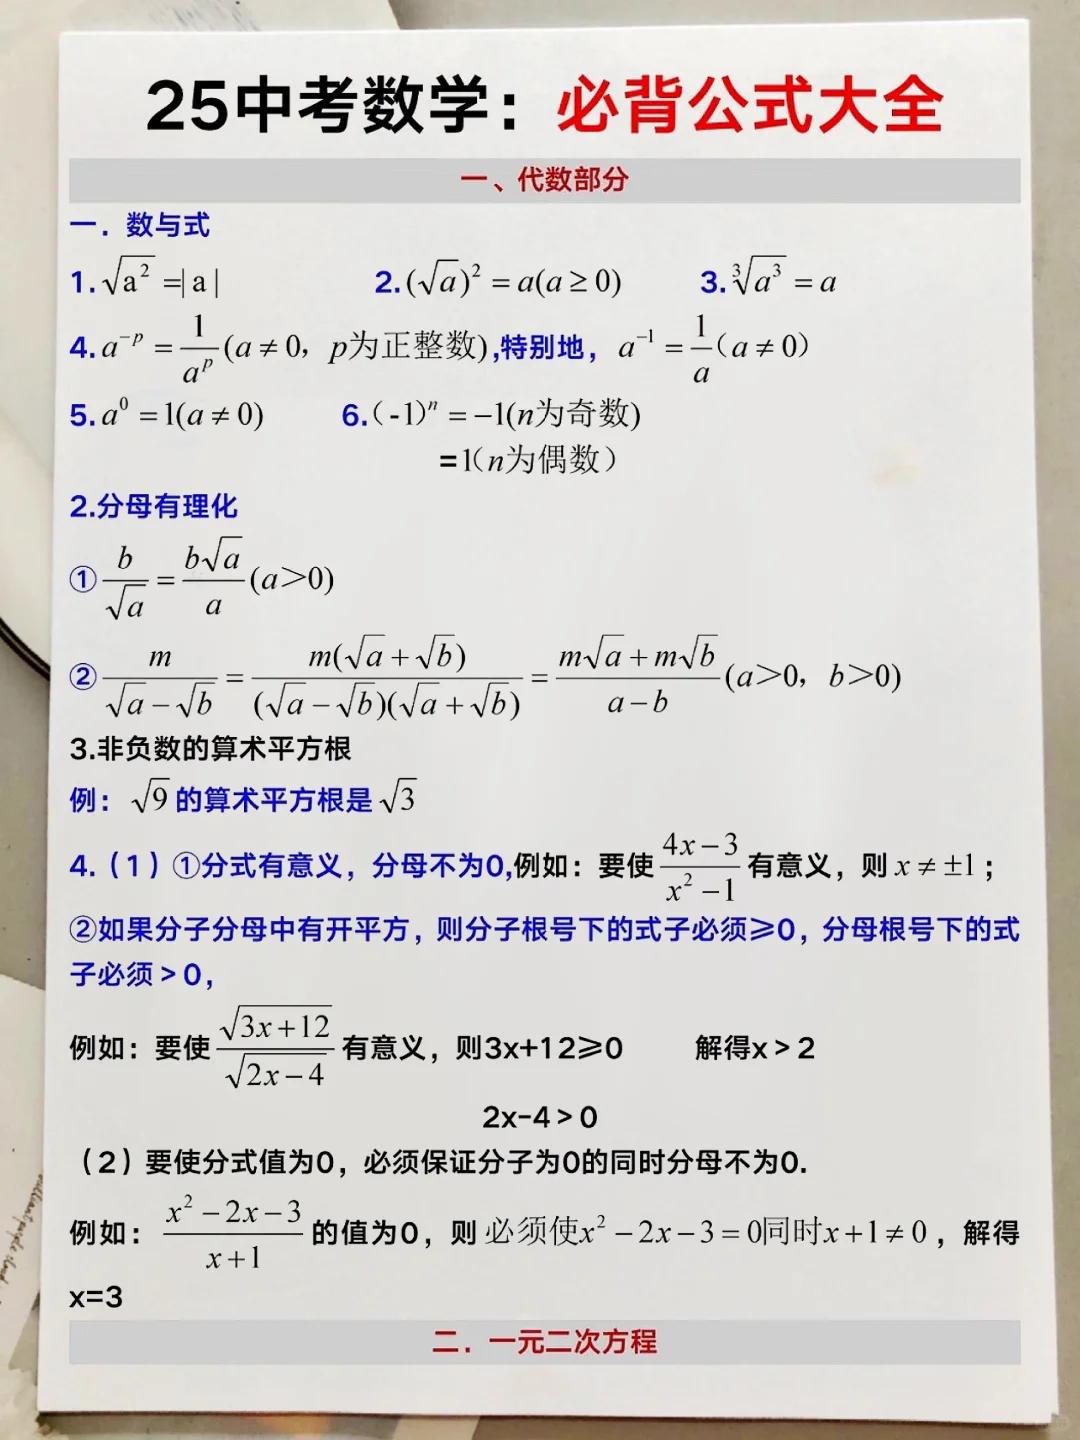 25中考数学：必背公式大全
一、代数部分
一．数与式
1. √a² =| a | 2. (√a)² = a(a ≥ 0) 3. ∛a³ = a
4. a⁻ᵖ = 1/aᵖ (a ≠ 0，p为正整数),特别地，a⁻¹ = 1/a（a ≠ 0）
5. a⁰ = 1(a ≠ 0) 6.（-1)ⁿ = −1(n为奇数)
=1（n为偶数）
2.分母有理化
① b/√a = b√a/a (a＞0)
② m/(√a − √b) = m(√a + √b)/((√a − √b)(√a + √b)) = (m√a + m√b)/(a − b) (a＞0，b＞0)
3.非负数的算术平方根
例：√9 的算术平方根是 √3
4.（1）①分式有意义，分母不为0,例如：要使 (4x − 3)/(x² − 1) 有意义，则 x ≠ ±1；
②如果分子分母中有开平方，则分子根号下的式子必须≥0，分母根号下的式
子必须＞0，
例如：要使 √(3x + 12)/√(2x − 4) 有意义，则3x+12≥0 解得x＞2
2x-4＞0
（2）要使分式值为0，必须保证分子为0的同时分母不为0.
例如：(x² − 2x − 3)/(x + 1) 的值为0，则 必须使x² − 2x − 3 = 0同时x + 1 ≠ 0 ，解得
x=3
二．一元二次方程